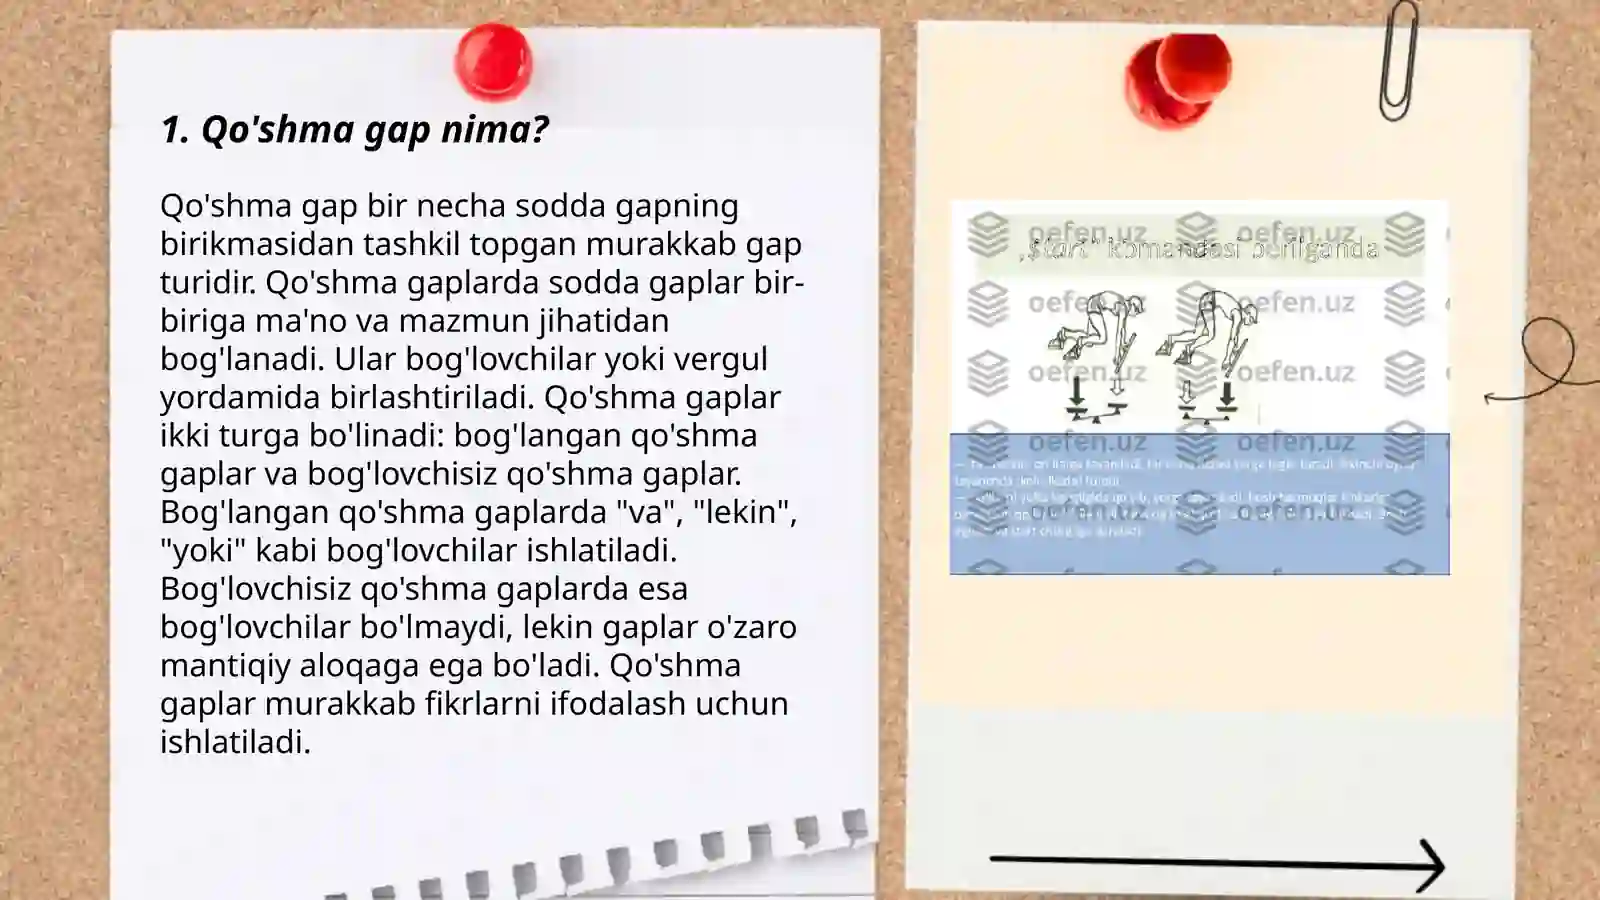 1. Qo'shma gap nima?
Qo'shma gap bir necha sodda gapning
birikmasidan tashkil topgan murakkab gap
turidir. Qo'shma gaplarda sodda gaplar bir-
biriga ma'no va mazmun jihatidan
bog'lanadi. Ular bog'lovchilar yoki vergul
yordamida birlashtiriladi. Qo'shma gaplar
ikki turga bo'linadi: bog'langan qo'shma
gaplar va bog'lovchisiz qo'shma gaplar.
Bog'langan qo'shma gaplarda "va", "lekin",
"yoki" kabi bog'lovchilar ishlatiladi.
Bog'lovchisiz qo'shma gaplarda esa
bog'lovchilar bo'lmaydi, lekin gaplar o'zaro
mantiqiy aloqaga ega bo'ladi. Qo'shma
gaplar murakkab fikrlarni ifodalash uchun
ishlatiladi.
oefen.uz oefen.uz
„Start" komandasi berilganda
oefen.uz oefen.uz
oefen.uz oefen.uz
oefen.uz oefen.uz
oefen.uz oefen.uz